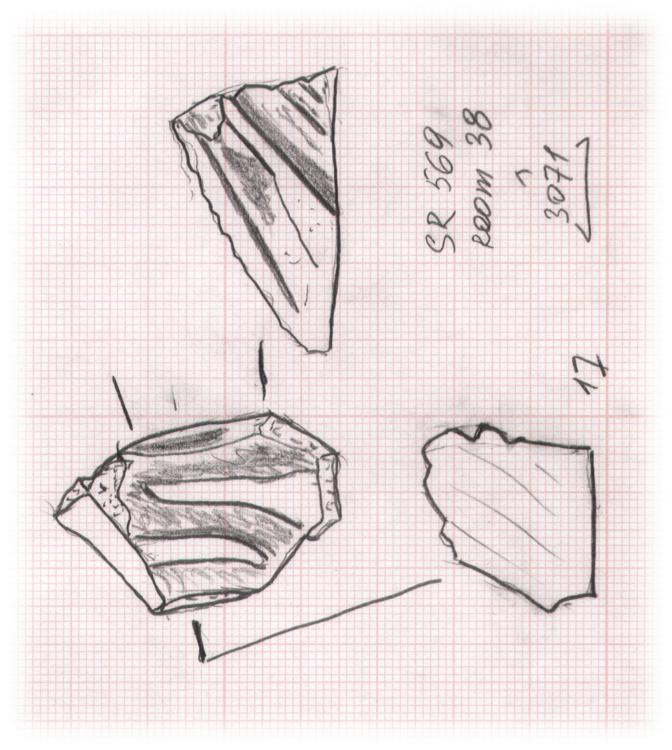 SR 569
room 38
3071
17